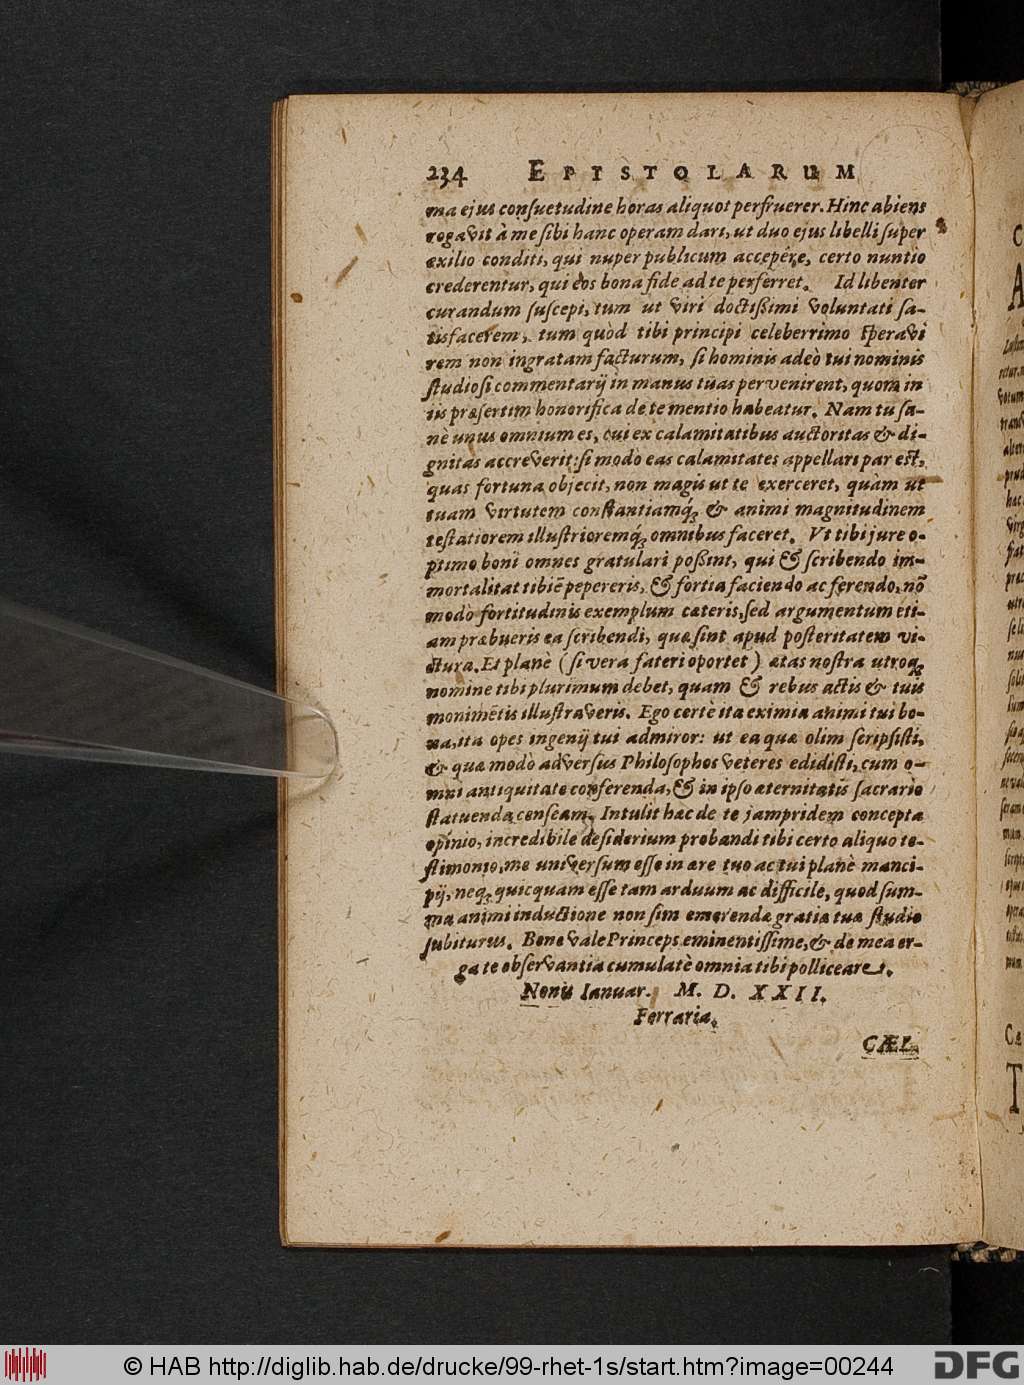 234 EPISTOLARUM
ma ejus consuetudine horas aliquot perfruerer. Hinc abiens
rogavit à me sibi hanc operam dari, ut duo ejus libelli super
exilio conditi, qui nuper publicum accepêre, certo nuntio
crederentur, qui eos bona fide ad te perferret. Id libenter
curandum suscepi, tum ut viri doctißimi voluntati sa-
tisfacerem, tum quòd tibi principi celeberrimo speravi
rem non ingratam facturum, si hominis adeò tui nominis
studiosi commentarij in manus tuas pervenirent, quom in
iis præsertim honorifica de te mentio habeatur. Nam tu sa-
nè unus omnium es, cui ex calamitatibus auctoritas & di-
gnitas accreverit: si modò eas calamitates appellari par est,
quas fortuna objecit, non magis ut te exerceret, quàm ut
tuam virtutem constantiamq́; & animi magnitudinem
testatiorem illustrioremq́; omnibus faceret. Vt tibi jure o-
ptimo boni omnes gratulari poßint, qui & scribendo im-
mortalitat tibiē pepereris, & fortia faciendo ac ferendo, nō
modò fortitudinis exemplum cæteris, sed argumentum eti-
am præbueris ea scribendi, quæ sint apud posteritatem vi-
ctura. Et planè (si vera fateri oportet) ætas nostra utroq;
nomine tibi plurimum debet, quam & rebus actis & tuis
monimētis illustraveris. Ego certè ita eximia animi tui bo-
na, ita opes ingenij tui admiror: ut ea quæ olim scripsisti,
& quæ modò adversus Philosophos veteres edidisti, cum o-
mni antiquitate conferenda, & in ipso æternitatis sacrario
statuenda censeam. Intulit hæc de te jampridem concepta
opinio, incredibile desiderium probandi tibi certo aliquo te-
stimonio, me universum esse in ære tuo ac tui planè manci-
pij, neq; quicquam esse tam arduum ac difficile, quod sum-
ma animi inductione non sim emerendæ gratiæ tuæ studio
subiturus. Bene vale Princeps eminentissime, & de mea er-
ga te observantia cumulatè omnia tibi polliceare.
Nonis Ianuar. M. D. XXII.
Ferrariæ.
CÆL.
© HAB http://diglib.hab.de/drucke/99-rhet-1s/start.htm?image=00244
DFG